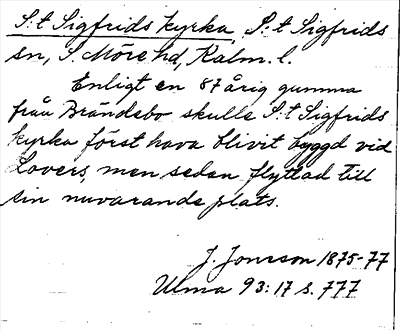 S:t Sigfrids kyrka, S:t Sigfrids
sn, S. Möre hd, Kalm. l.
Enligt en 87 årig gumma
från Brändebo skulle S:t Sigfrids
kyrka först hava blivit byggd vid
Lovers, men sedan flyttad till
sin nuvarande plats.
J. Jonsson 1875-77
Ulma 93:17 s. 777